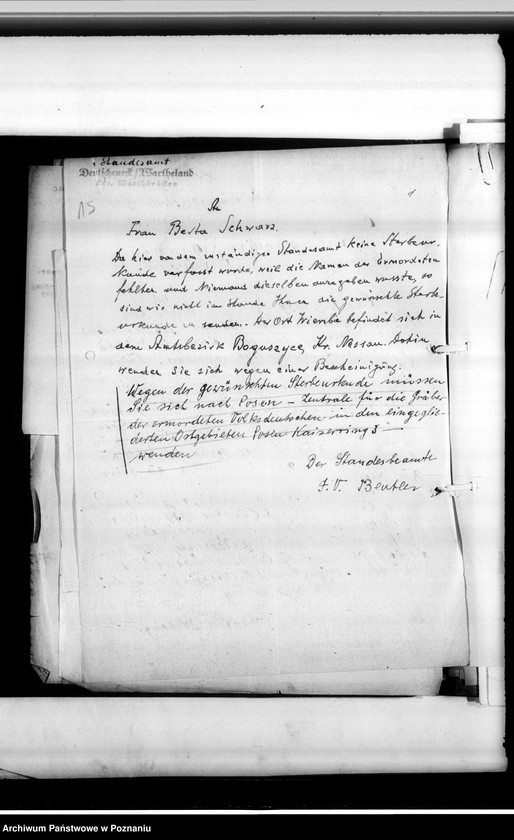 Standesamt
Deutscheneck/Wartheland
Krs. Warthbrücken
15
An
Frau Berta Schwarz.
Da hier von dem zuständigen Standesamt keine Sterbeur-
kunde verfasst wurde, weil die Namen der Ermordeten
fehlten und Niemand dieselben anzugeben wusste, so
sind wir nicht im Stande Ihnen die gewünschte Sterbe-
urkunde zu senden. Der Ort Wierzbe befindet sich in
dem Amtsbezirk Boguszyce, Kr. Nessau. Dorthin
wenden Sie sich wegen einer Bescheinigung.
Wegen der gewünschten Sterbeurkunde müssen
Sie sich nach Posen – Zentrale für die Gräber
der ermordeten Volksdeutschen in den eingeglie-
derten Ostgebieten Posen Kaiserring 3 –
wenden
Der Standesbeamte
I. V. Beutler
Archiwum Państwowe w Poznaniu